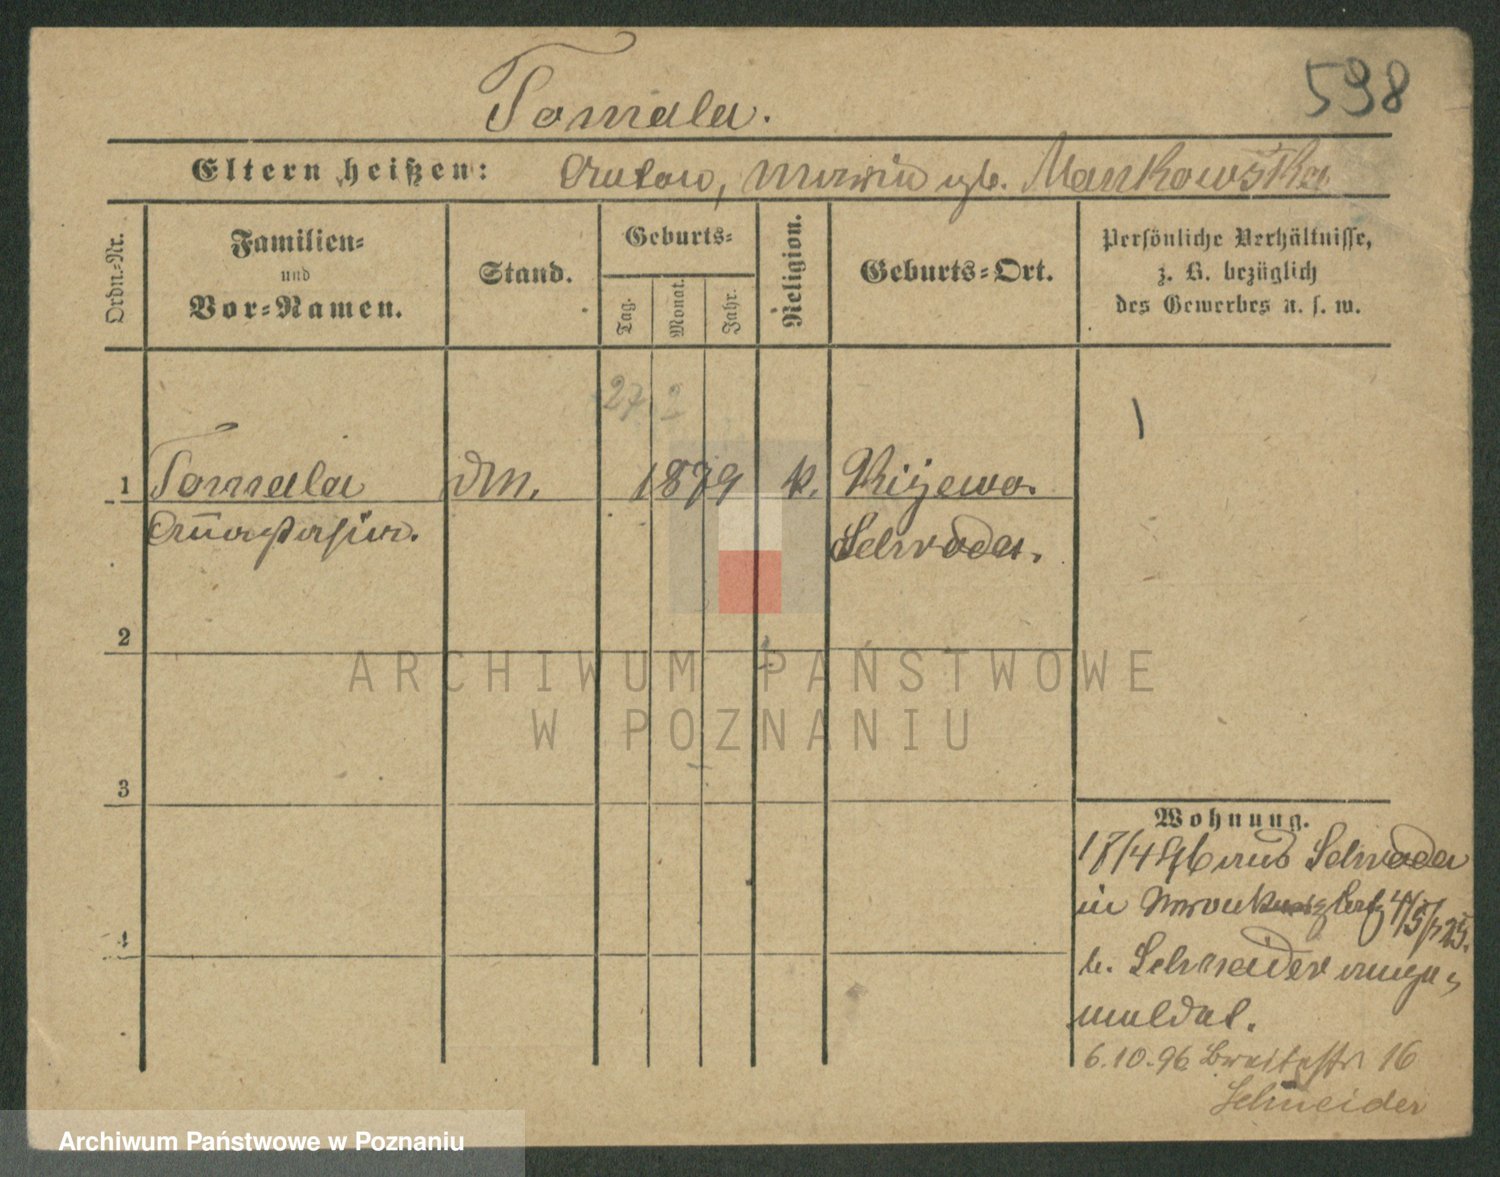 598
Tomala.
Eltern heißen: Anton, Maria gb. Mankowska
Ordn.-Nr.
Familien-
und
Vor-Namen.
Stand.
Geburts-
Tag.
Monat.
Jahr.
Religion.
Geburts-Ort.
Persönliche Verhältnisse,
z. B. bezüglich
des Gewerbes u. s. w.
27. 2
1 Tomala dm. 1879 k. Kijewo.
Anastasia. Schroda.
2
3
4
Wohnung.
17/4 96 aus Schroda
in
b. Schneider ange-
meldet.
6.10.96 Breitestr. 16
Schneider
ARCHIWUM PAŃSTWOWE
W POZNANIU
Archiwum Państwowe w Poznaniu